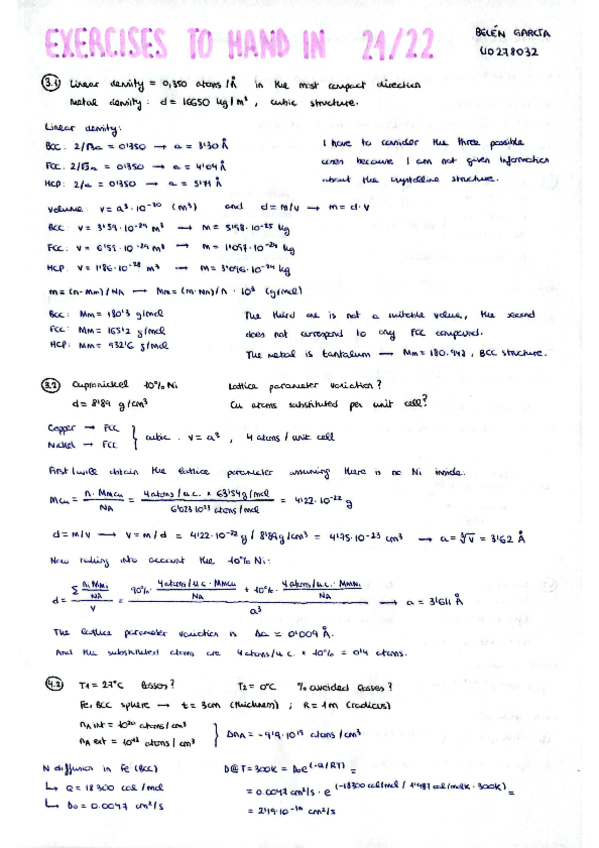 EXERCISES TO HAND IN 21/22
BELÉN GARCÍA
UO278032
3.1 Linear density = 0,350 atoms/Å in the most compact direction
Metal density: d = 16650 kg/m³, cubic structure.
Linear density:
BCC: 2/√3a = 0'350 → a = 3'30 Å
FCC: 2/√2a = 0'350 → a = 4'04 Å
HCP: 2/a = 0'350 → a = 5'71 Å
I have to consider the three possible
cases because I am not given information
about the crystalline structure.
Volume: V = a³·10⁻³⁰ (m³) and d = m/v → m = d·V
BCC: V = 3'59·10⁻²⁹ m³ → m = 5'98·10⁻²⁵ kg
FCC: V = 6'59·10⁻²⁹ m³ → m = 1'097·10⁻²⁴ kg
HCP: V = 1'86·10⁻²⁸ m³ → m = 3'096·10⁻²⁴ kg
m = (n·Mm)/NA → Mm = (m·NA)/n · 10³ (g/mol)
BCC: Mm = 180'3 g/mol
FCC: Mm = 165'2 g/mol
HCP: Mm = 932'6 g/mol
The third one is not a suitable value, the second
does not correspond to any FCC compound.
The metal is tantalum → Mm = 180.948, BCC structure.
3.2 Cupronickel 10% Ni
d = 8'89 g/cm³
Lattice parameter variation?
Cu atoms substituted per unit cell?
Copper → FCC
Nickel → FCC
cubic. V = a³, 4 atoms / unit cell
First I will obtain the lattice parameter assuming there is no Ni inside:
mcu = n·Mmcu / NA = 4 atoms/u.c. · 63'54 g/mol / 6'023·10²³ atoms/mol = 4'22·10⁻²² g
d = m/v → V = m/d = 4'22·10⁻²² g / 8'89 g/cm³ = 4'75·10⁻²³ cm³ → a = ∛V = 3'62 Å
Now taking into account the 10% Ni:
d = Σ ni Mmi / NA / V = 90%· 4 atoms/u.c. · Mmcu / NA + 10%· 4 atoms/u.c. · MmNi / NA / a³ → a = 3'611 Å
The lattice parameter variation is Δa = 0'009 Å.
And the substituted atoms are 4 atoms/u.c. × 10% = 0'4 atoms.
4.2 T1 = 27°C losses? T2 = 0°C % avoided losses?
Fe, BCC sphere → t = 3cm (thickness) ; R = 1m (radius)
nA int = 10²⁰ atoms/cm³
nA ext = 10¹⁸ atoms/cm³
ΔnA = -9'9·10¹⁹ atoms/cm³
N diffusion in Fe (BCC)
↳ Q = 18 300 cal/mol
↳ Do = 0.0047 cm²/s
D@T=300K = Do e^(-Q/RT) =
= 0.0047 cm²/s · e^(-18300 cal/mol / 1'987 cal/molK · 300K) =
= 2'19·10⁻¹⁶ cm²/s